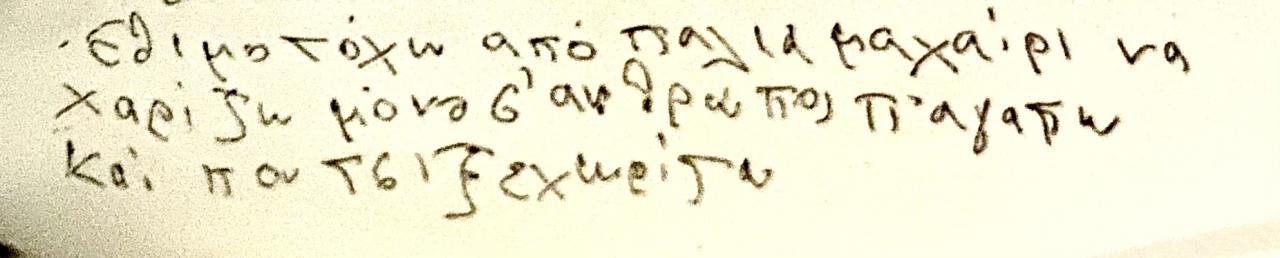 ·Εθιμο τόχω από παλιά μαχαίρι να
χαρίζω μόνο σ' ανθρώπους π' αγαπω
και που τσι ξεχωρίζω